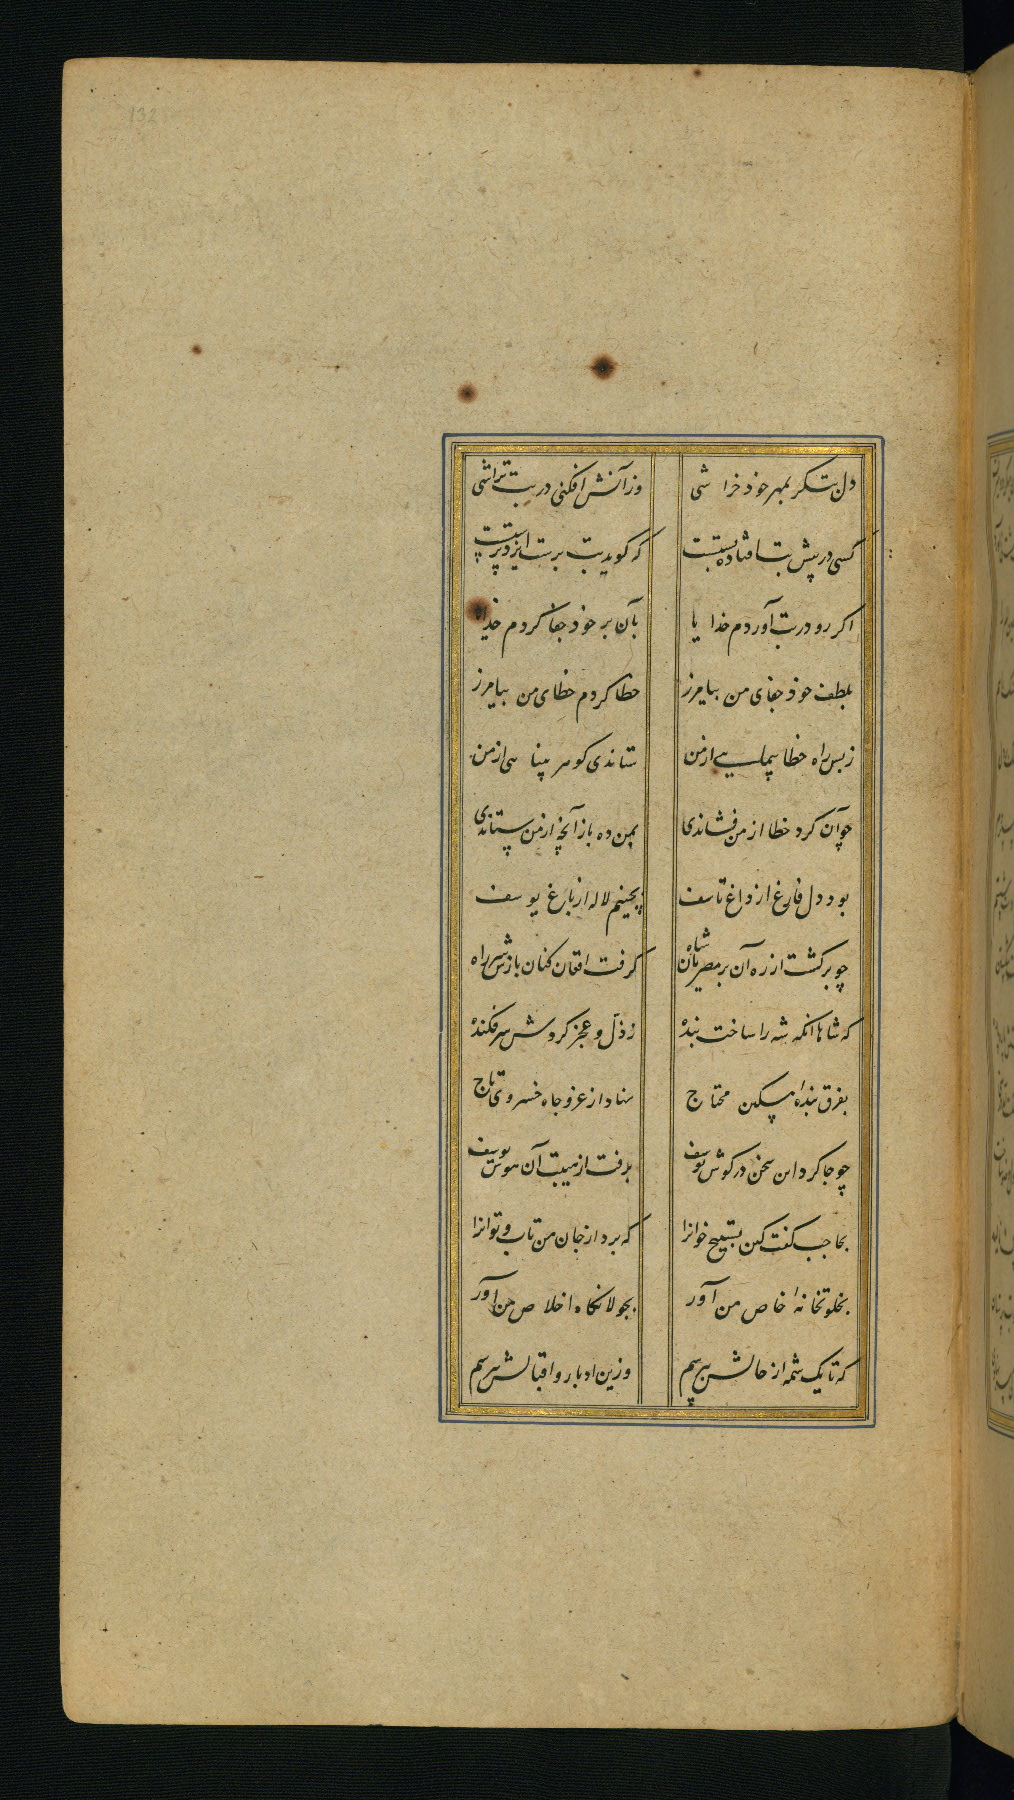 132
دل بتگر بمهر خود خراشی وز آتش افکنی در بت تراشی
کسی در پیش بت افتاده پستست که گوید بت پرست ایزد پرستست
اکر رو در بت آوردم خدایا بآن بر خود جفا کردم خدایا
بلطف خود جفای من بیامرز خطا کردم خطای من بیامرز
زبس راه خطا پیمایی از من ستاندی کوهر بینایی از من
چو آن کرد خطا از من فشاندی بمن ده باز آنچه از من ستاندی
بود دل فارغ از داغ تاسف بچینم لاله از باغ یوسف
چو برکشت از ره آن بر مصریان شاه کرفت افغان کنان بازش سر راه
که شاها انکه شه را ساخت بنده ز ذل و عجز کردش سرفکنده
بفرق بنده مسکین محتاج نهاد از عز و جاه خسروی تاج
چو جا کرد این سخن در کوش یوسف برفت از هیبت آن هوش یوسف
بحاجب کفت کین تسبیح خوانرا که برد از جان من تاب و توانرا
بخلوتخانه خاص من آور بجولانکاه اخلاص من آور
که تا یک شمه از حالش بپرسم وزین ادبار و اقبالش بپرسم